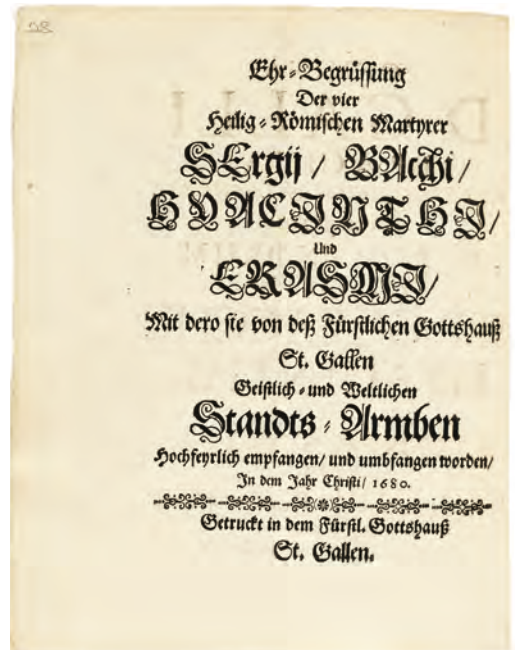 28
Ehr-Begrüssung
Der vier
Heilig-Römischen Martyrer
SErgij / BAcchi /
HYACINTHI /
Und
ERASMI /
Mit dero sie von deß Fürstlichen Gottshauß
St. Gallen
Geistlich-und Weltlichen
Standts-Armben
Hochfeyrlich empfangen / und umbfangen worden /
In dem Jahr Christi / 1680.
Getruckt in dem Fürstl. Gottshauß
St. Gallen.